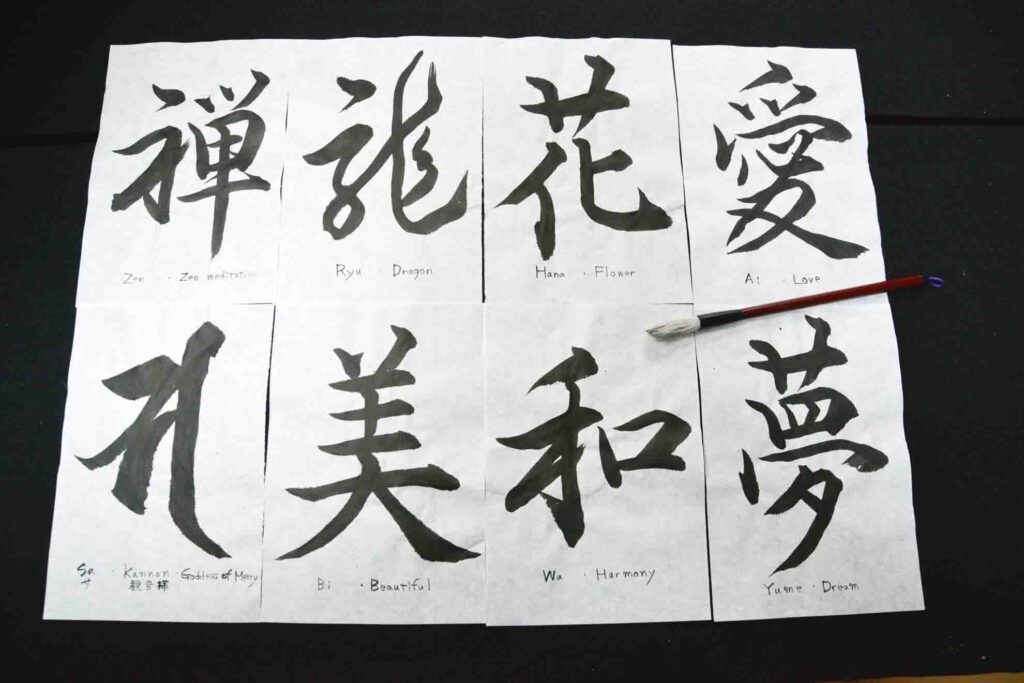 禅
Zen · Zen meditation
龍
Ryu · Dragon
花
Hana · Flower
愛
Ai · Love
𑖭
Sa · Kannon · Goddess of Mercy
サ 観音様
美
Bi · Beautiful
和
Wa · Harmony
夢
Yume · Dream